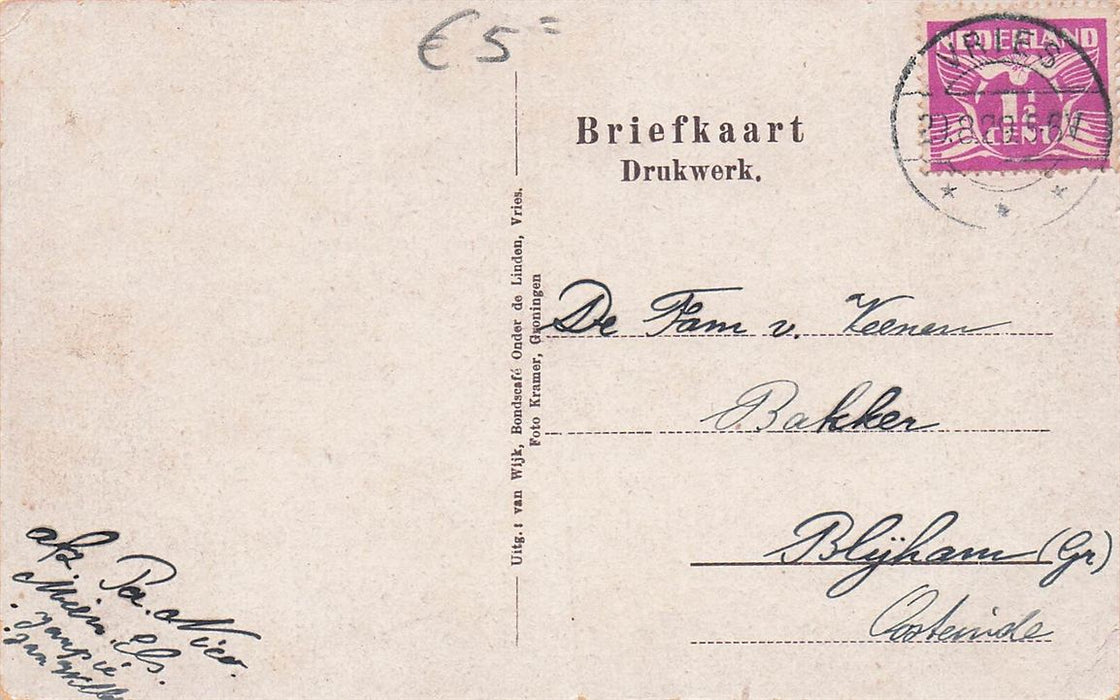 € 5=
NEDERLAND
1½
CENT
VRIES
Briefkaart
Drukwerk.
Uitg.: van Wijk, Bondscafé Onder de Linden, Vries.
Foto Kramer, Groningen
De Fam v. Veenen
Bakker
Blijham (Gr)
Oosteinde
afz. Pa. Nico.
Mien. Els.